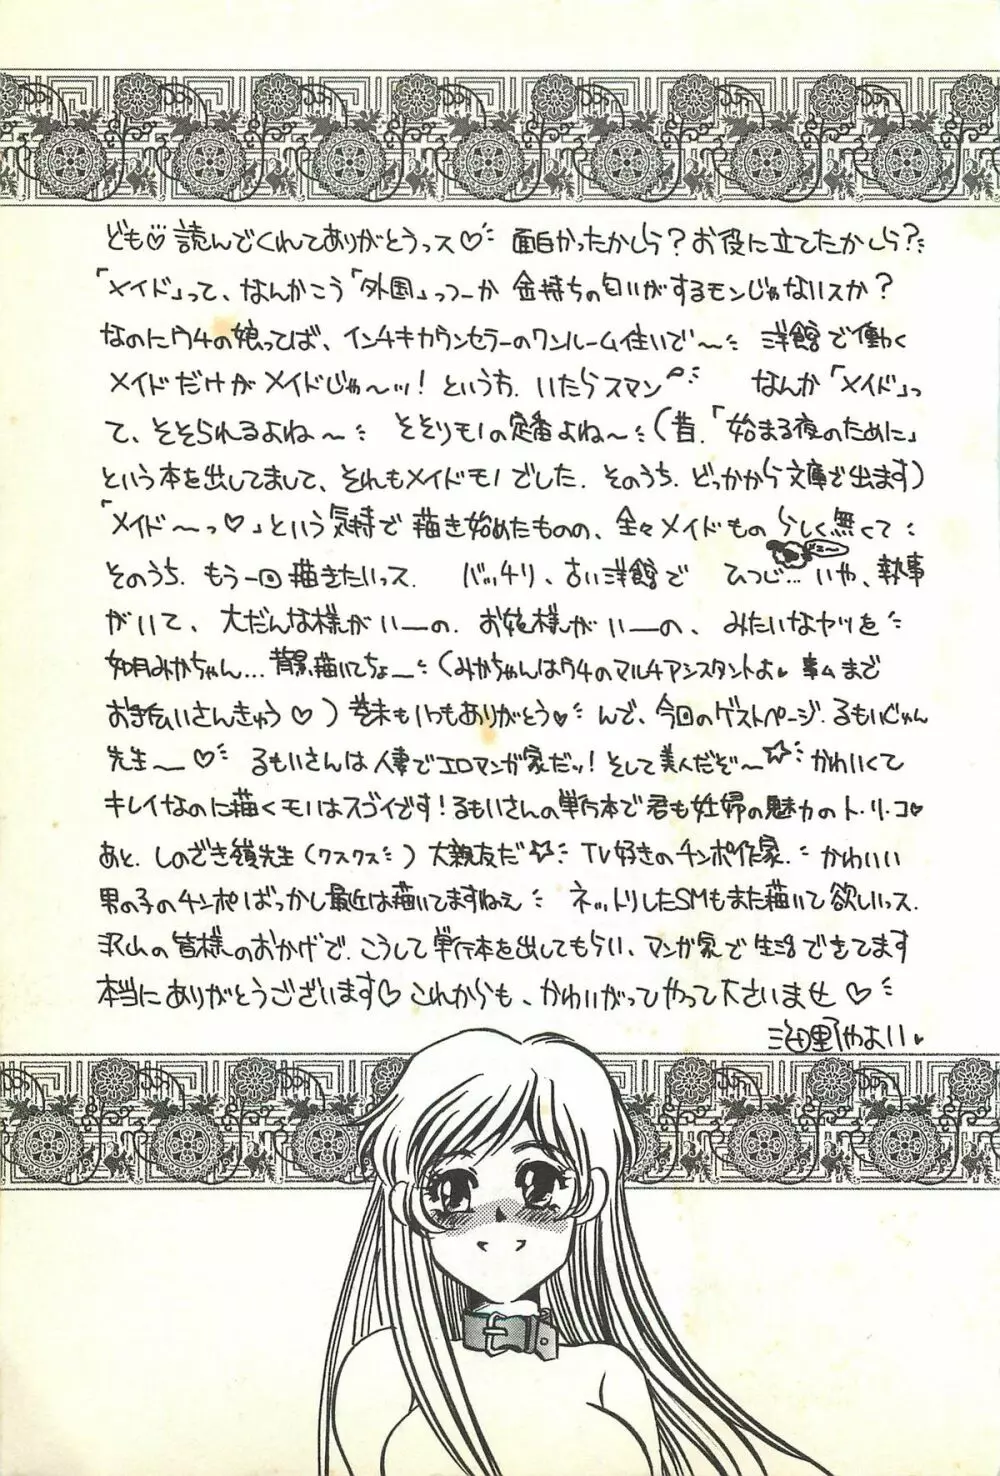 ども♡読んでくれてありがとうっス♡ 面白かったかしら？お役に立てたかしら？
「メイド」って、なんかこう「外国」っつーか 金持ちの匂いがするモンじゃないスか？
なのにウチの娘ってば、インチキカウンセラーのワンルーム住いで〜 洋館で働く
メイドだけがメイドじゃ〜ッ！というわ. いたらスマン なんか「メイド」っ
て、そそられるよね〜 そそりモノの定番よね〜（昔.「始まる夜のために」
という本を出してまして、それもメイドモノでした. そのうち. どっかから文庫で出ます）
「メイド〜っ♡」という気持で描き始めたものの、全々メイドものらしく無くて
そのうち. もう一回描きたいっス. バッチリ、古い洋館で ひつじ…いや、執事
がいて、大だんな様がいーの. お姫様がいーの、みたいなヤツを
如月みかちゃん…背景描いてちょー（みかちゃんはウチのマルチアシスタントよ♥ 事ムまで
お手伝いさんきゅう♡）巻末もいつもありがとう♥ んで、今回のゲストページ. るもいじゅん
先生〜♡ るもいさんは人妻でエロマンガ家だッ！そして美人だぞ〜☆ かわいくて
キレイなのに描くモノはスゴイです！るもいさんの単行本で君も妊婦の魅力のト・リ・コ♥
あと. しのざき嶺先生（クスクス）大親友だ☆ TV好きのチンポ作家. かわいい
男の子のチンポばっかし最近は描いてますねえ ネットリしたSMもまた描いて欲しいっス.
沢山の皆様のおかげで. こうして単行本を出してもらい、マンガ家で生活できてます
本当にありがとうございます♡これからも、かわいがってやって下さいませ♡
海野やよい♥